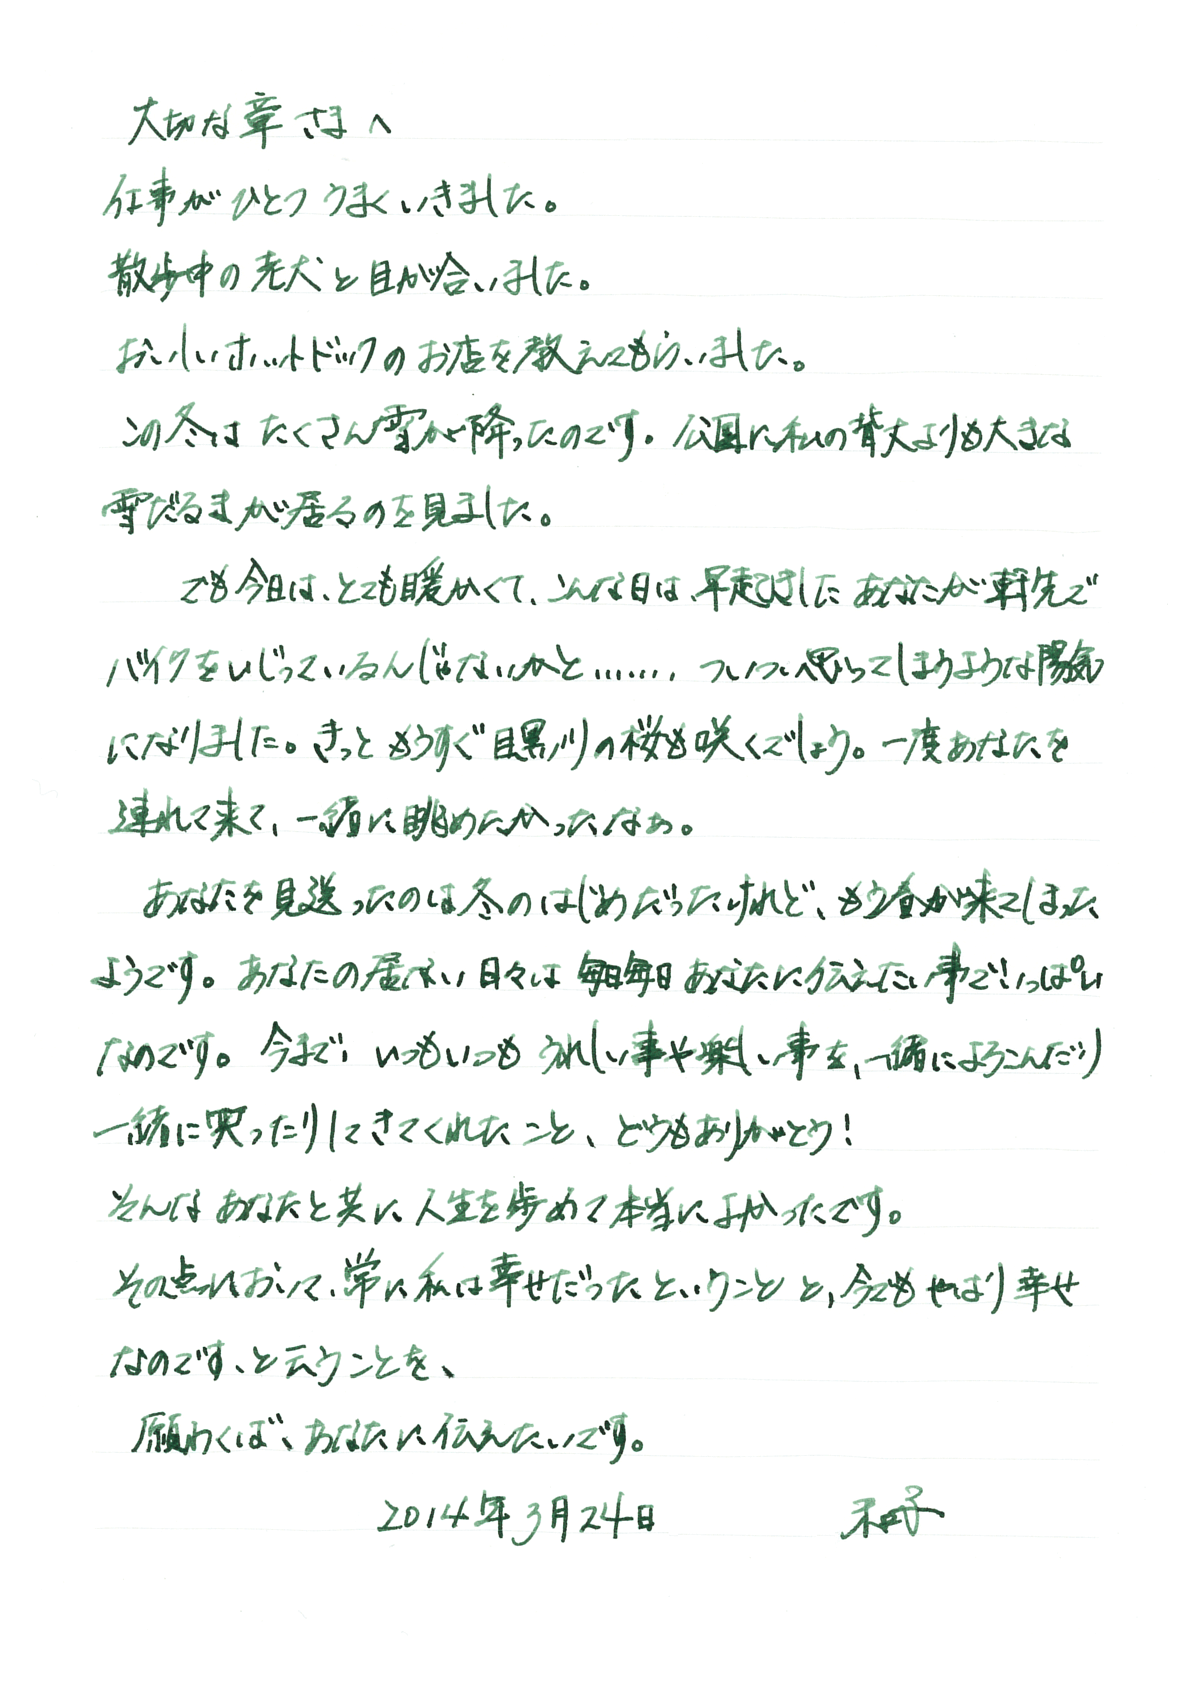 大切な章さまへ
仕事がひとつうまくいきました。
散歩中の老犬と目が合いました。
おいしいホットドックのお店を教えてもらいました。
この冬はたくさん雪が降ったのです。公園に私の背丈よりも大きな
雪だるまが居るのを見ました。
でも今日は、とても暖かくて、こんな日は、早起きしたあなたが軒先で
バイクをいじっているんじゃないかと……，ついつい思ってしまうような陽気
になりました。きっともうすぐ目黒川の桜も咲くでしょう。一度あなたを
連れて来て、一緒に眺めたかったなぁ。
あなたを見送ったのは冬のはじめだったけれど、もう春が来てしまった
ようです。あなたの居ない日々は毎日毎日あなたに伝えたい事でいっぱい
なのです。今まで、いつもいつもうれしい事や楽しい事を、一緒によろこんだり
一緒に笑ったりしてきてくれたこと、どうもありがとう！
そんなあなたと共に人生を歩めて本当によかったです。
その点において、常に私は幸せだったということと，今でもやはり幸せ
なのです、と云うことを、
願わくば、あなたに伝えたいです。
2014年3月24日 和子